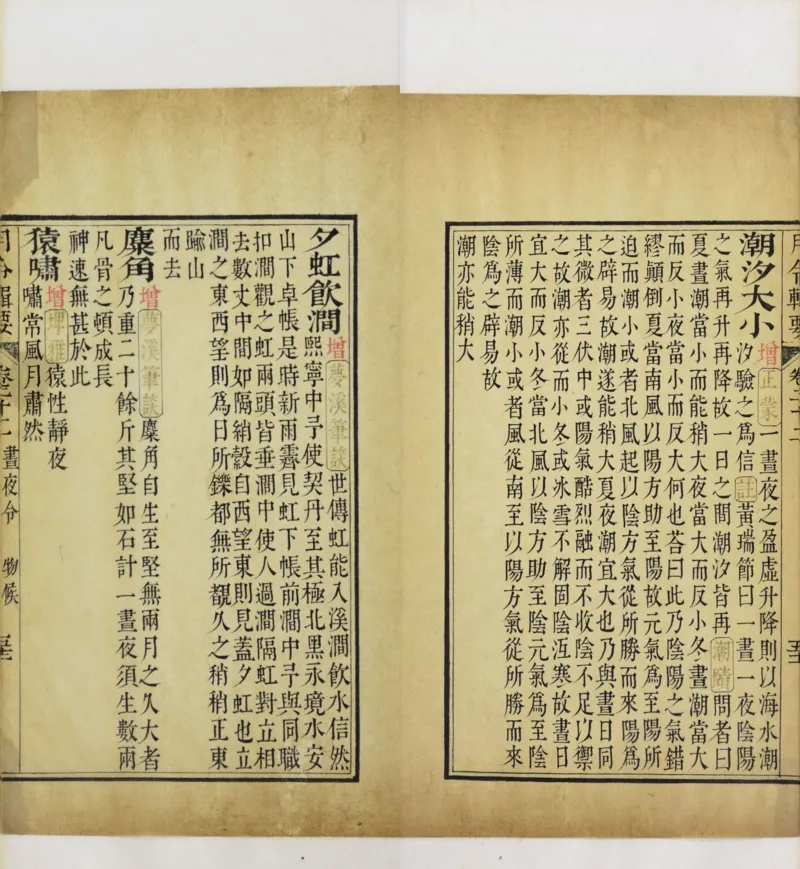 月令輯要 卷二十二
潮汐大小 增 正蒙 一晝夜之盈虛升降則以海水潮
汐驗之爲信 註 黃瑞節曰一晝一夜陰陽
之氣再升再降故一日之間潮汐皆再 潮賾 問者曰
夏晝潮當小而能稍大夜當大而反小冬晝潮當大
而反小夜當小而反大何也荅曰此乃陰陽之氣錯
繆顛倒夏當南風以陽方助至陽故元氣爲至陽所
迫而潮小或者北風起以陰方氣從所勝而來陽爲
之辟易故潮遂能稍大夏夜潮宜大也乃與晝日同
其微者三伏中或陽氣酷烈融而不收陰不足以禦
之故潮亦從而小冬或氷雪不解固陰沍寒故晝日
宜大而反小冬當北風以陰方助至陰元氣爲至陰
所薄而潮小或者風從南至以陽方氣從所勝而來
陰爲之辟易故
潮亦能稍大
夕虹飲澗 增 夢溪筆談 世傳虹能入溪澗飲水信然
熙寧中予使契丹至其極北黑永境水安
山下卓帳是時新雨霽見虹下帳前澗中予與同職
扣澗觀之虹兩頭皆垂澗中使人過澗隔虹對立相
去數丈中間如隔綃縠自西望東則見蓋夕虹也立
澗之東西望則爲日所鑠都無所覩久之稍稍正東
踰山
而去
麋角 增 夢溪筆談 麋角自生至堅無兩月之久大者
乃重二十餘斤其堅如石計一晝夜須生數兩
凡骨之頓成長
神速無甚於此
猿嘯 增 埤雅 猿性靜夜
嘯常風月肅然
月令輯要 卷二十二 晝夜令 物候